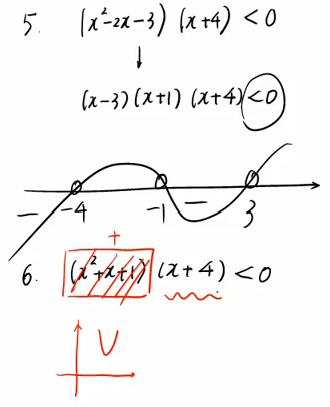 5. (x²-2x-3) (x+4) < 0
↓
(x-3) (x+1) (x+4) < 0
− -4 -1 − 3
+
6. (x²+x+1) (x+4) < 0